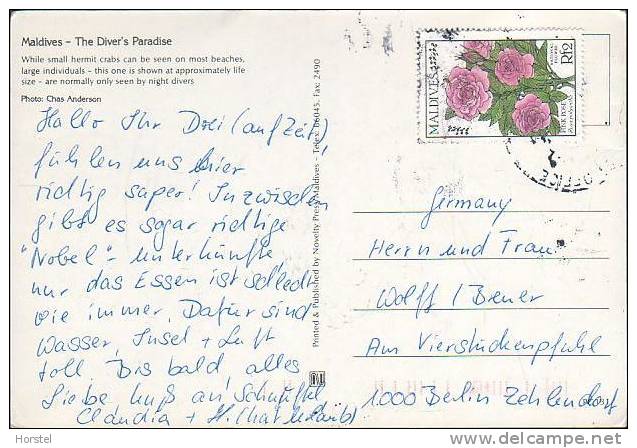 Maldives - The Diver's Paradise
While small hermit crabs can be seen on most beaches,
large individuals - this one is shown at approximately life
size - are normally only seen by night divers
Photo: Chas Anderson
Hallo Ihr Drei (auf Zeit)
fühlen uns hier
richtig super! Inzwischen
gibt es sogar richtige
"Nobel"-unterkünfte
nur das Essen ist schlecht
wie immer. Dafür sind
Wasser, Insel + Luft
toll Bis bald alles
Liebe Kuß an Schnüffel
Claudia + H.
Printed & Published by Novelty Press, Maldives - Telex: 66045, Fax: 2490
MALDIVES
Rf2
PINK ROSE
OFFICE
Germany
Herrn und Frau
Wolff / Breuer
Am Vierstückenpfuhl
1000 Berlin Zehlendorf
Horstel
www.delcampe.net